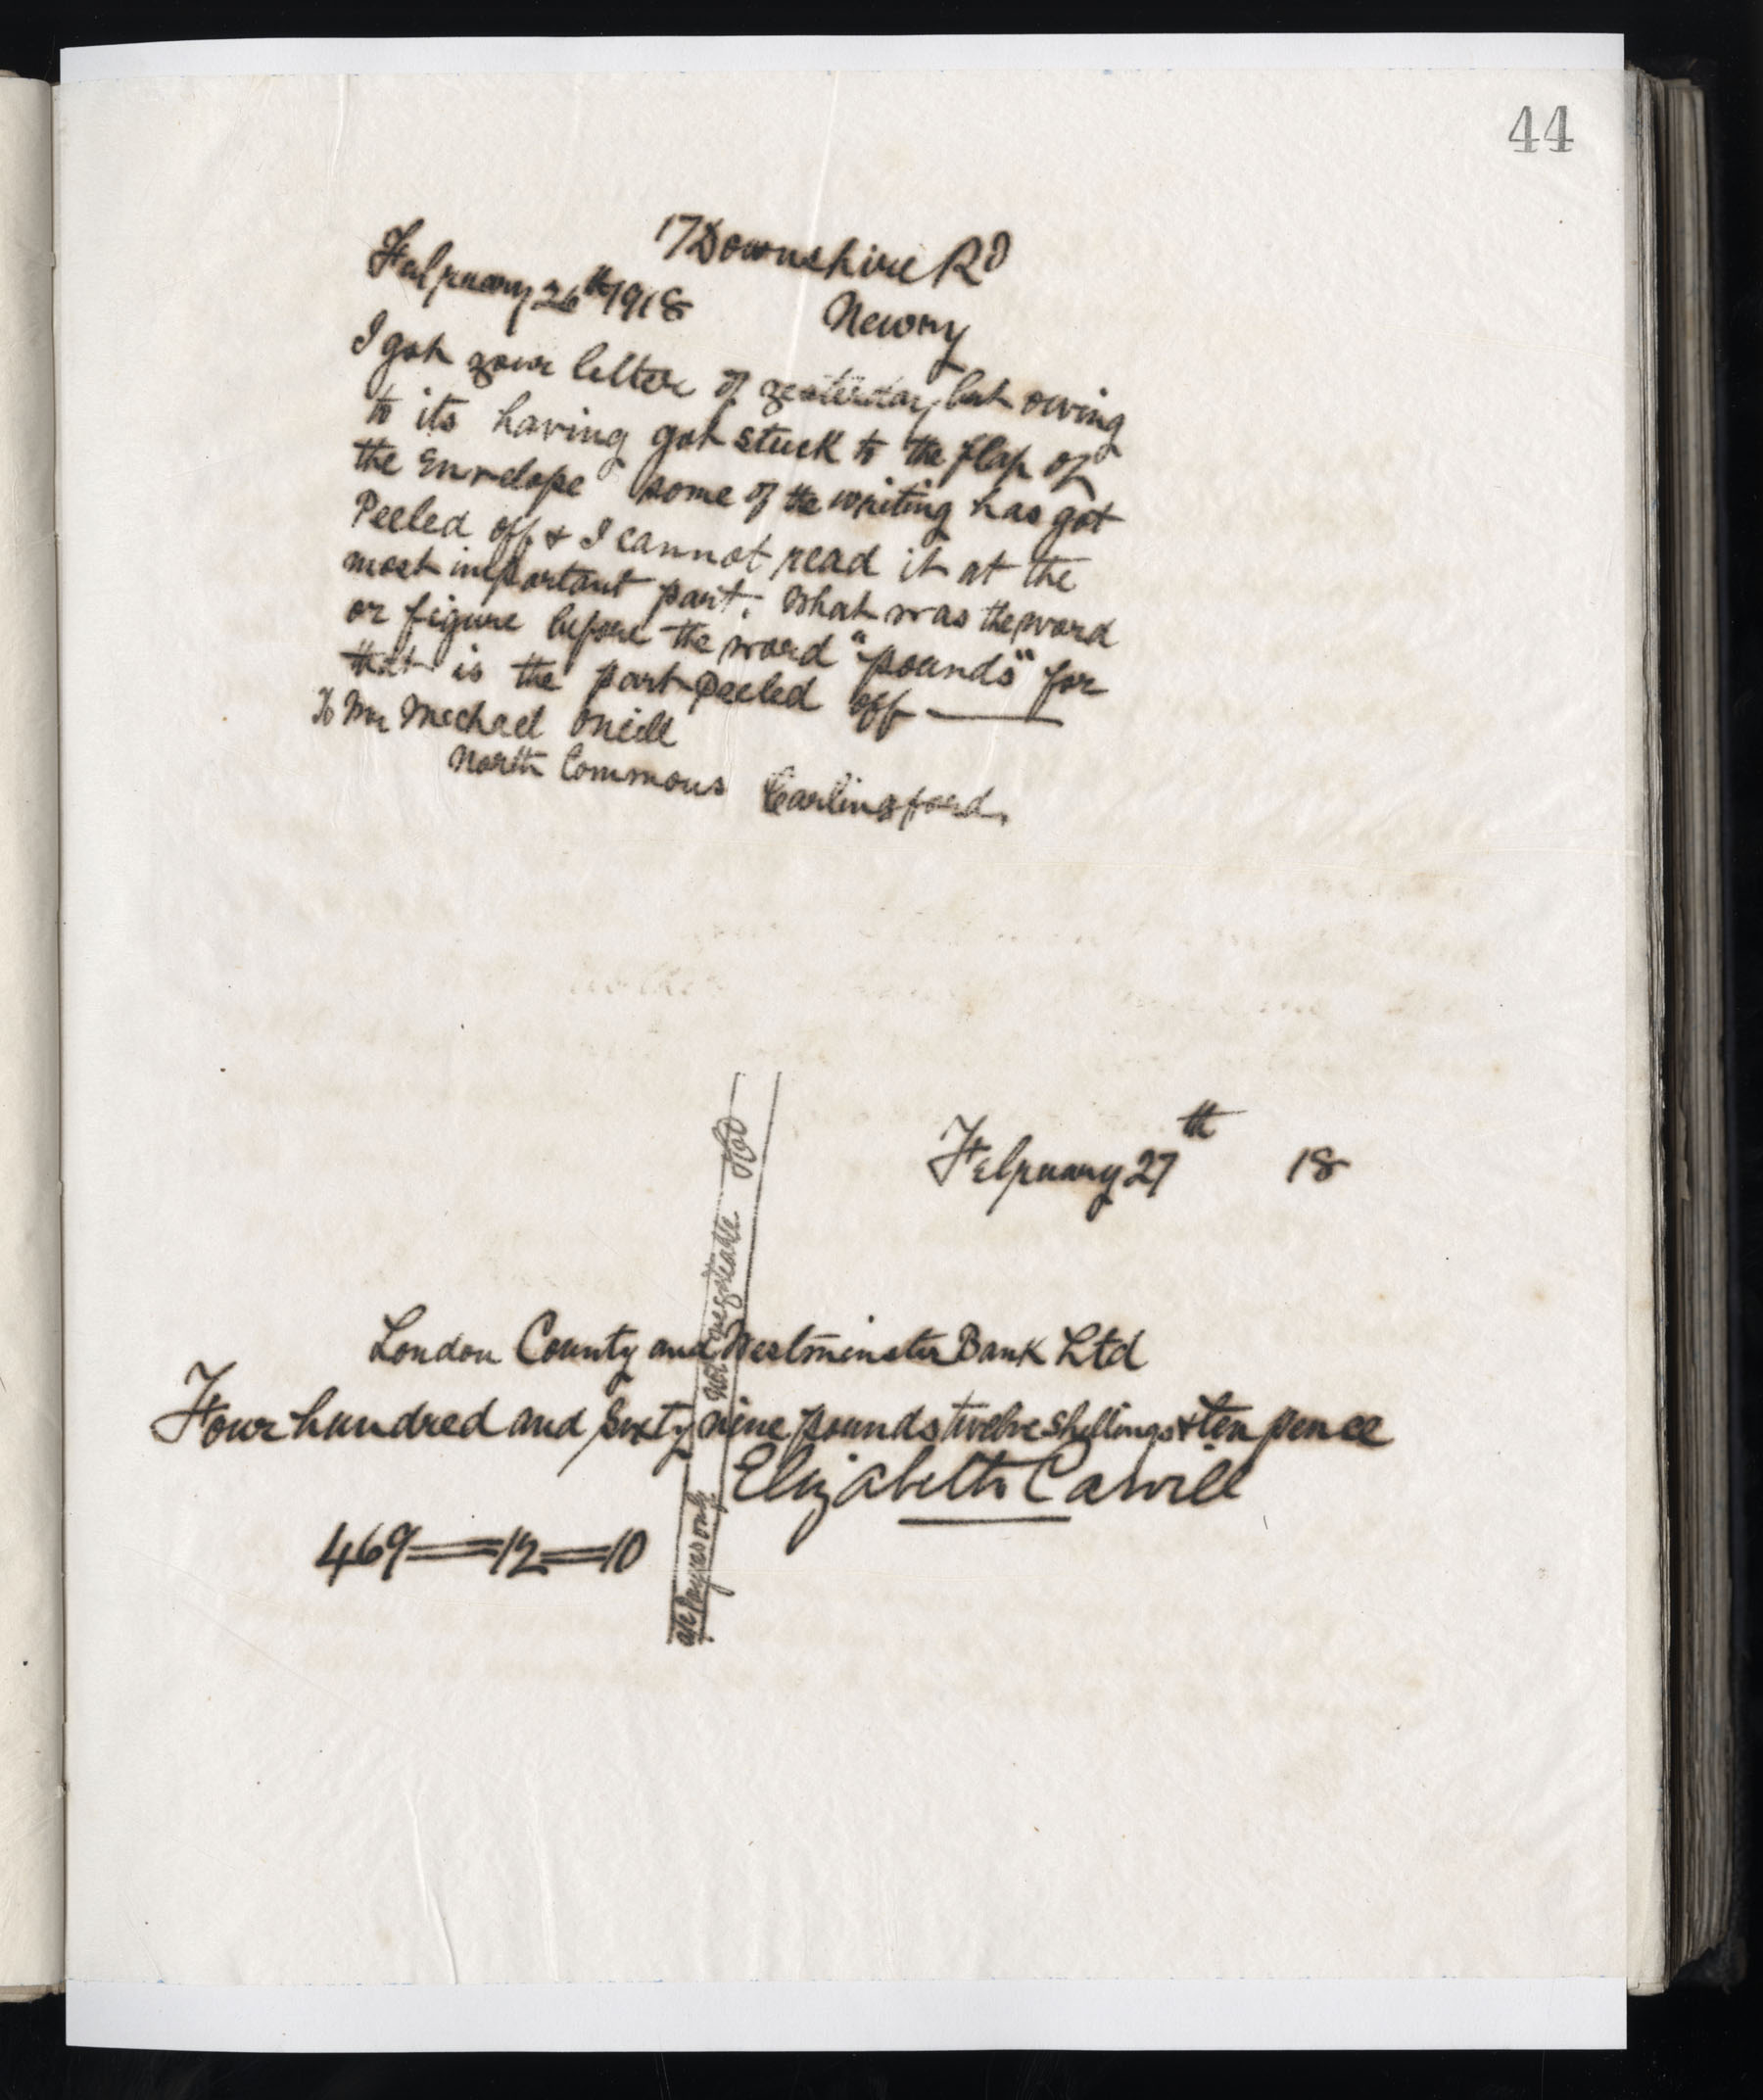 44
17 Downshire Rd
February 26th 1918
Newry
I got your letter of yesterday, but owing
to its having got stuck to the flap of
the Envelope some of the writing has got
Peeled off & I cannot read it at the
most important part. What was the word
or figure before the word "pounds" for
that is the part peeled off
To Mr Michael Oneill
North Commons Carlingford.
February 27th 18
London County and Westminster Bank Ltd
Four hundred and sixty nine pounds twelve shillings & ten pence
Elizabeth Carvill
469=12=10
a/c payees only Not negotiable